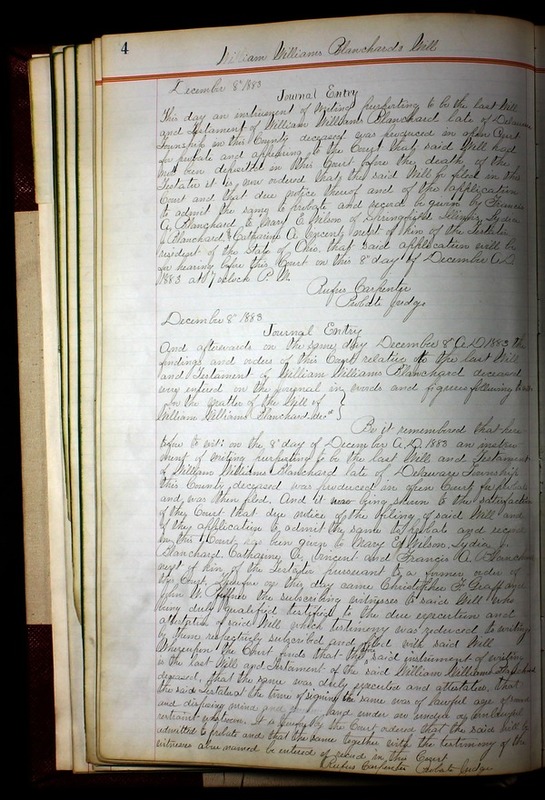 4
William Williams Blanchards Will
December 8th 1883
Journal Entry
This day an instrument of writing purporting to be the last Will
and Testament of William Williams Blanchard late of Delaware
Township in this County deceased was produced in open Court
for probate and appearing to the Court that said Will had
not been deposited in this Court before the death of the
Testator it is now ordered that the said Will be filed in this
Court and that due notice thereof and of the application
to admit the same to probate and record be given by Francis
A. Blanchard to Mary E. Wilson of Springfield Illinois, Lydia
J. Blanchard, Catharine A. Vincent next of kin of the Testator
resident of the State of Ohio, that said application will be
for hearing before this Court on this 8th day of December A.D
1883 at 1 oclock P.M.
Rufus Carpenter
Probate Judge
December 8th 1883
Journal Entry
And afterwards on the same day December 8th A.D. 1883 the
findings and orders of this Court relative to the last Will
and Testament of William Williams Blanchard deceased
were entered on the journal in words and figures following to wit:
In the matter of the Will of
William Williams Blanchard decd }
Be it remembered that here
tofore to wit: on the 8th day of December A.D. 1883 an instru
ment of writing purporting to be the last Will and Testament
of William Williams Blanchard late of Delaware Township
this County deceased was produced in open Court for probate
and was then filed. And it now being shown to the satisfaction
of this Court that due notice of the filing of said Will and
of the application to admit the same to probate and record
in this Court has been given to Mary E. Wilson, Lydia J.
Blanchard Catharine A. Vincent and Francis A. Blanchard
next of kin of the Testator pursuant to a former order of
this Court, on this day came Christopher F.
John W. the subscribing witnesses to said Will who
being duly qualified testified to the due execution and
attestation of said Will which testimony was reduced to writing
by them respectively subscribed and filed with said Will
Whereupon the Court finds that the said instrument of writing
is the last Will and Testament of the said William Williams Blanchard
deceased, that the same was duly executed and attested, that
the said Testator at the time of signing the same was of lawful age of sound
and disposing mind and and under no undue or unlawful
restraint whatsoever. It is further by the Court ordered that the said will be
admitted to probate and that the same together with the testimony of the
witnesses above named be entered of record in this Court
Rufus Carpenter Probate Judge